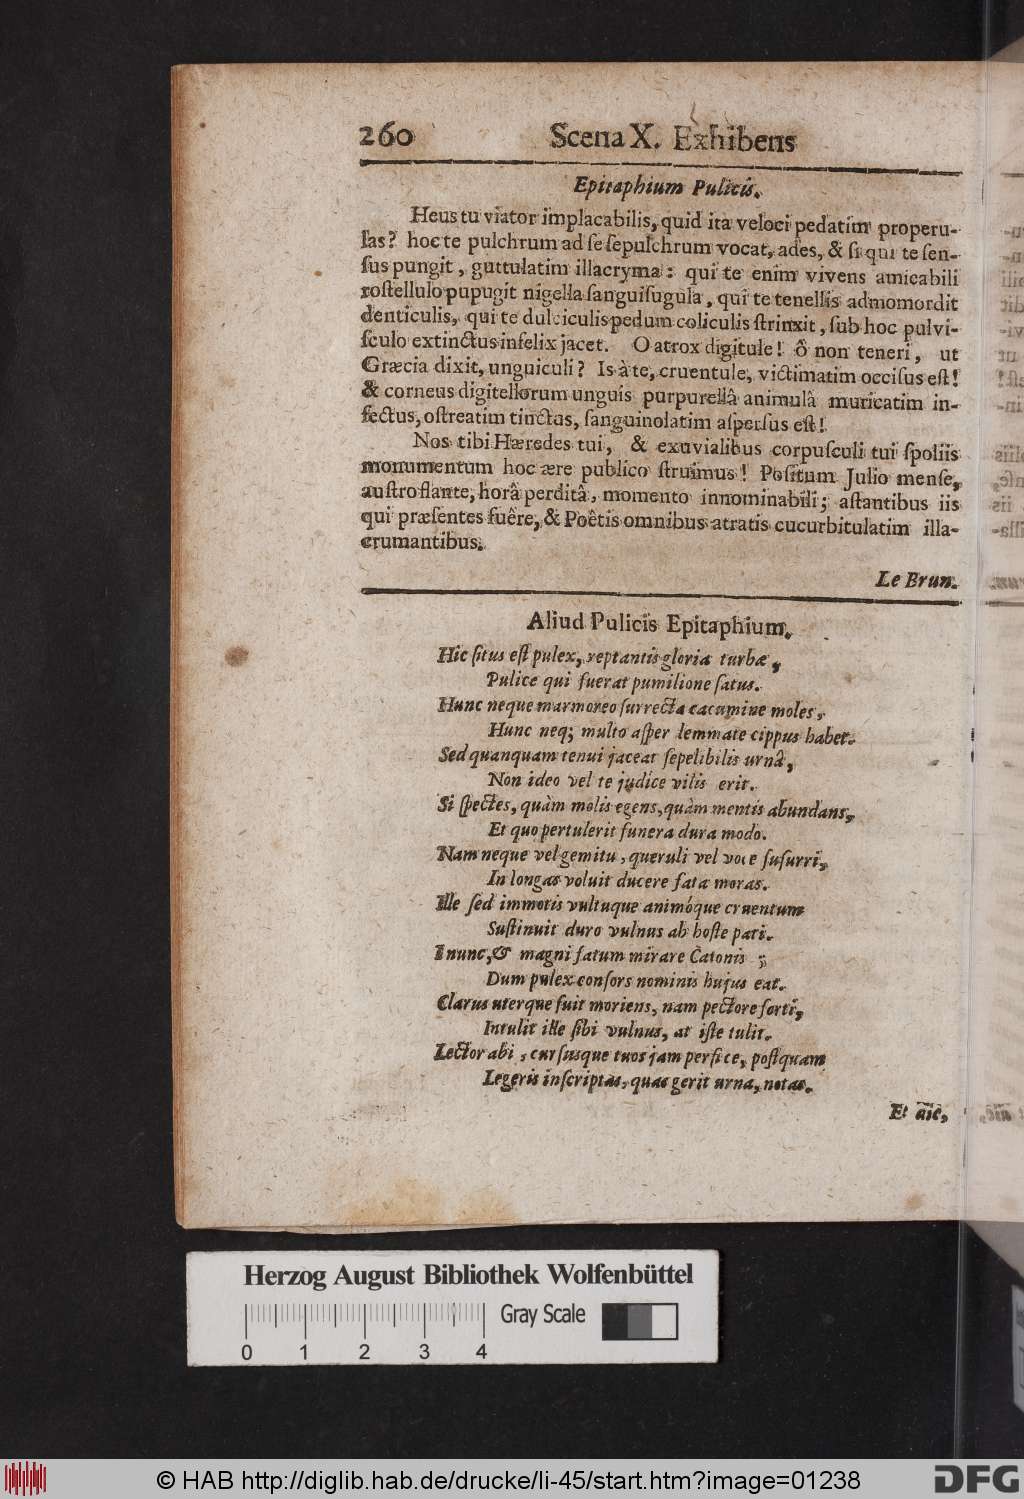 260 Scena X. Exhibens
Epitaphium Pulicis.
Heus tu viator implacabilis, quid ita veloci pedatim properu-
las? hoc te pulchrum ad se sepulchrum vocat, ades, & si qui te sen-
sus pungit, guttulatim illacryma: qui te enim vivens amicabili
rostellulo pupugit nigella sanguisugula, qui te tenellis admomordit
denticulis, qui te dulciculis pedum coliculis strinxit, sub hoc pulvi-
sculo extinctus infelix jacet. O atrox digitule! ô non teneri, ut
Græcia dixit, unguiculi? Is à te, cruentule, victimatim occisus est!
& corneus digitellorum unguis purpurellâ animulâ muricatim in-
fectus, ostreatim tinctus, sanguinolatim aspersus est!
Nos tibi Hæredes tui, & exuvialibus corpusculi tui spoliis
monumentum hoc ære publico struimus! Positum Julio mense,
austro flante, horâ perditâ, momento innominabili; astantibus iis
qui præsentes fuêre, & Poêtis omnibus atratis cucurbitulatim illa-
crumantibus.
Le Brun.
Aliud Pulicis Epitaphium.
Hic situs est pulex, reptantis gloria turbæ,
Pulice qui fuerat pumilione satus.
Hunc neque marmoreo surrecta cacumine moles,
Hunc neq; multo asper lemmate cippus habet.
Sed quanquam tenui jaceat sepelibilis urnâ,
Non ideo vel te judice vilis erit.
Si spectes, quàm molis egens, quàm mentis abundans,
Et quo pertulerit funera dura modo.
Nam neque vel gemitu, queruli vel voce susurri,
In longas voluit ducere fata moras.
Ille sed immotis vultuque animóque cruentum
Sustinuit duro vulnus ab hoste pati.
I nunc, & magni fatum mirare Catonis;
Dum pulex consors nominis hujus eat.
Clarus uterque fuit moriens, nam pectore forti,
Intulit ille sibi vulnus, at iste tulit.
Lector abi, cursusque tuos jam perfice, postquam
Legeris inscriptas, quas gerit urna, notas.
Et aïc,
Herzog August Bibliothek Wolfenbüttel
Gray Scale
0 1 2 3 4
© HAB http://diglib.hab.de/drucke/li-45/start.htm?image=01238
DFG